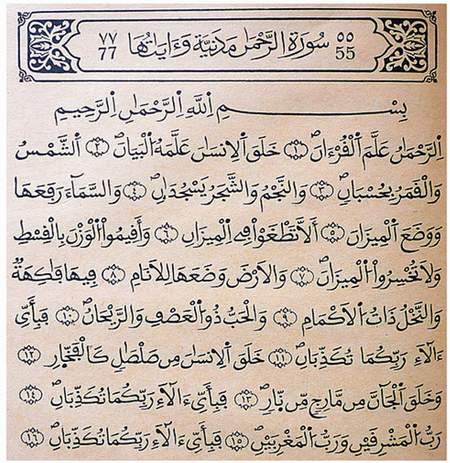 ٥٥ 55 سُورَةُ الرَّحْمَٰن مَدَنِيَّة وَءَايَاتُهَا ٧٧ 77
بِسْمِ اِللَّهِ اِلرَّحْمَٰنِ اِلرَّحِيمِ
اِلرَّحْمَٰنُ عَلَّمَ اَلْقُرْءَانَ ١ خَلَقَ اَلِانسَٰنَ عَلَّمَهُ اُلْبَيَانَ ٢ اَلشَّمْسُ
وَالْقَمَرُ بِحُسْبَانٍ ٣ وَالنَّجْمُ وَالشَّجَرُ يَسْجُدَٰنِ ٤ وَالسَّمَآءَ رَفَعَهَا
وَوَضَعَ اَلْمِيزَانَ ٥ أَلَّا تَطْغَوْاْ فِے اِلْمِيزَانِ ٦ وَأَقِيمُواْ اُلْوَزْنَ بِالْقِسْطِ
وَلَا تُخْسِرُواْ اُلْمِيزَانَ ٧ وَالَارْضَ وَضَعَهَا لِلَانَامِ ٨ فِيهَا فَٰكِهَةٌ
وَالنَّخْلُ ذَاتُ اُلَاكْمَامِ ٩ وَالْحَبُّ ذُو اُلْعَصْفِ وَالرَّيْحَانُ ١٠ فَبِأَيِّ
ءَالَآءِ رَبِّكُمَا تُكَذِّبَانِ ١١ خَلَقَ اَلِانسَٰنَ مِن صَلْصَٰلٍ كَالْفَخّارِ ١٢
وَخَلَقَ اَلْجَآنَّ مِن مَّارِجٍ مِّن نّارٍ ١٣ فَبِأَيِّ ءَالَآءِ رَبِّكُمَا تُكَذِّبَانِ ١٤
رَبُّ اُلْمَشْرِقَيْنِ وَرَبُّ اُلْمَغْرِبَيْنِ ١٥ فَبِأَيِّ ءَالَآءِ رَبِّكُمَا تُكَذِّبَانِ ١٦